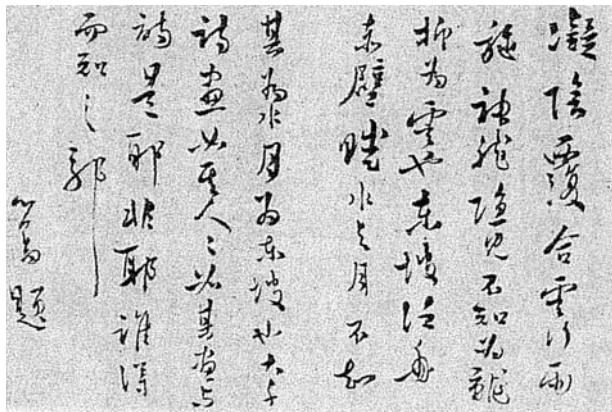 凝陰覆合雲行雨
施神龍隱見不知為龍
抑為雲也東坡泛舟
赤壁賦水與月不知
其為水月為東坡也大千
詩畫如其人人如其畫與
詩是耶非耶誰得
而知之耶
心畬題